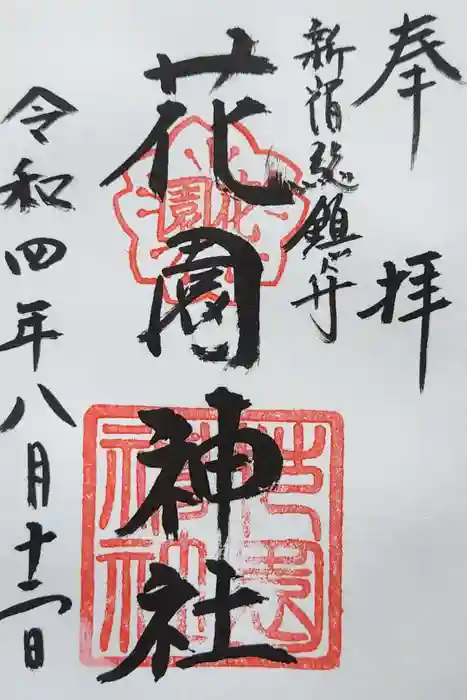 奉拝
新宿総鎮守
花園神社
花園
花園神社
令和四年八月十二日